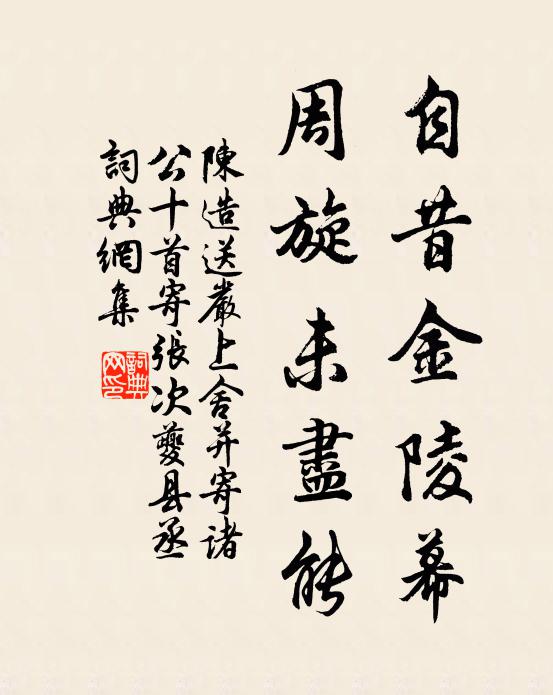 自昔金陵幕
周旋未盡能
陳造送嚴上舍并寄諸
公十首寄張次夔县丞
詞典網集
詞典网印